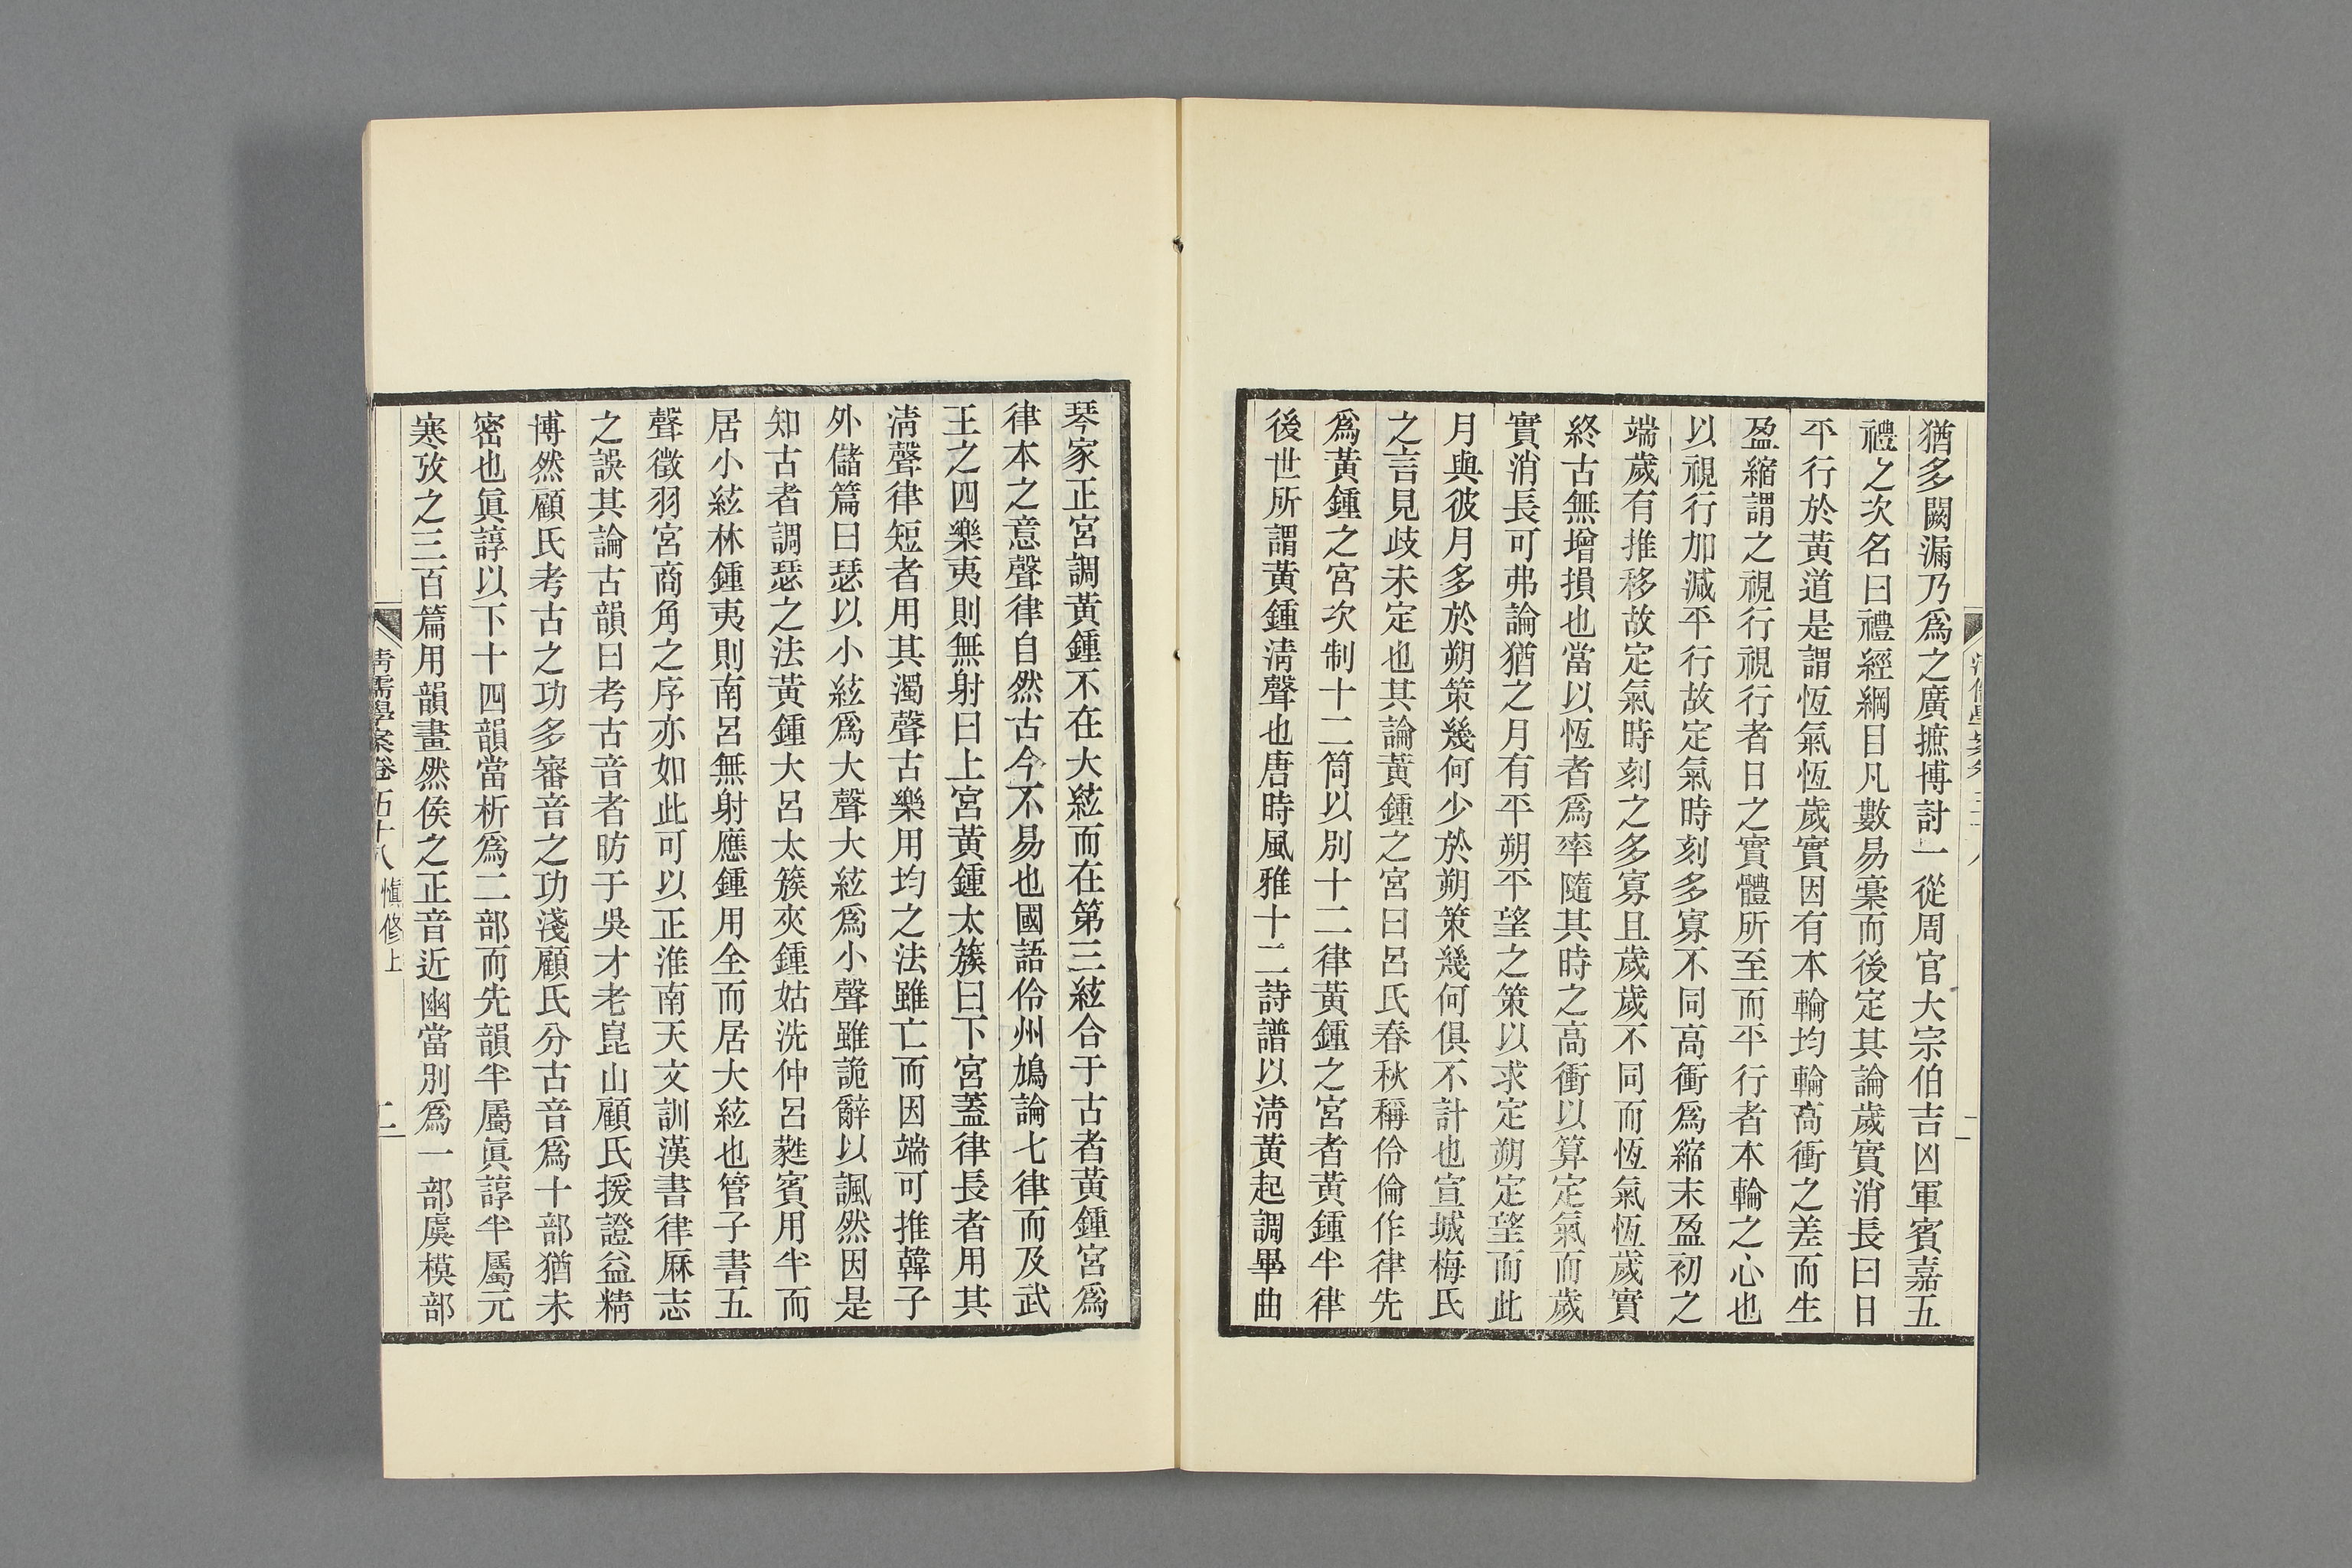 猶多闕漏乃爲之廣摭博討一從周官大宗伯吉凶軍賓嘉五
禮之次名曰禮經綱目凡數易稾而後定其論歲實消長曰日
平行於黃道是謂恆氣恆歲實因有本輪均輪高衝之差而生
盈縮謂之視行視行者日之實體所至而平行者本輪之心也
以視行加減平行故定氣時刻多寡不同高衝爲縮末盈初之
端歲有推移故定氣時刻之多寡且歲歲不同而恆氣恆歲實
終古無增損也當以恆者爲率隨其時之高衝以算定氣而歲
實消長可弗論猶之月有平朔平望之策以求定朔定望而此
月與彼月多於朔策幾何少於朔策幾何俱不計也宣城梅氏
之言見歧未定也其論黃鍾之宮曰呂氏春秋稱伶倫作律先
爲黃鍾之宮次制十二筒以別十二律黃鍾之宮者黃鍾半律
後世所謂黃鍾淸聲也唐時風雅十二詩譜以淸黃起調畢曲
琴家正宮調黃鍾不在大絃而在第三絃合于古者黃鍾宮爲
律本之意聲律自然古今不易也國語伶州鳩論七律而及武
王之四樂夷則無射曰上宮黃鍾太簇曰下宮蓋律長者用其
淸聲律短者用其濁聲古樂用均之法雖亡而因端可推韓子
外儲篇曰瑟以小絃爲大聲大絃爲小聲雖詭辭以諷然因是
知古者調瑟之法黃鍾大呂太簇夾鍾姑洗仲呂蕤賓用半而
居小絃林鍾夷則南呂無射應鍾用全而居大絃也管子書五
聲徵羽宮商角之序亦如此可以正淮南天文訓漢書律厤志
之誤其論古韻曰考古音者昉于吳才老崑山顧氏援證益精
博然顧氏考古之功多審音之功淺顧氏分古音爲十部猶未
密也眞諄以下十四韻當析爲二部而先韻半屬眞諄半屬元
寒攷之三百篇用韻畫然侯之正音近幽當別爲一部虞模部
淸儒學案卷五十八 愼修上 二